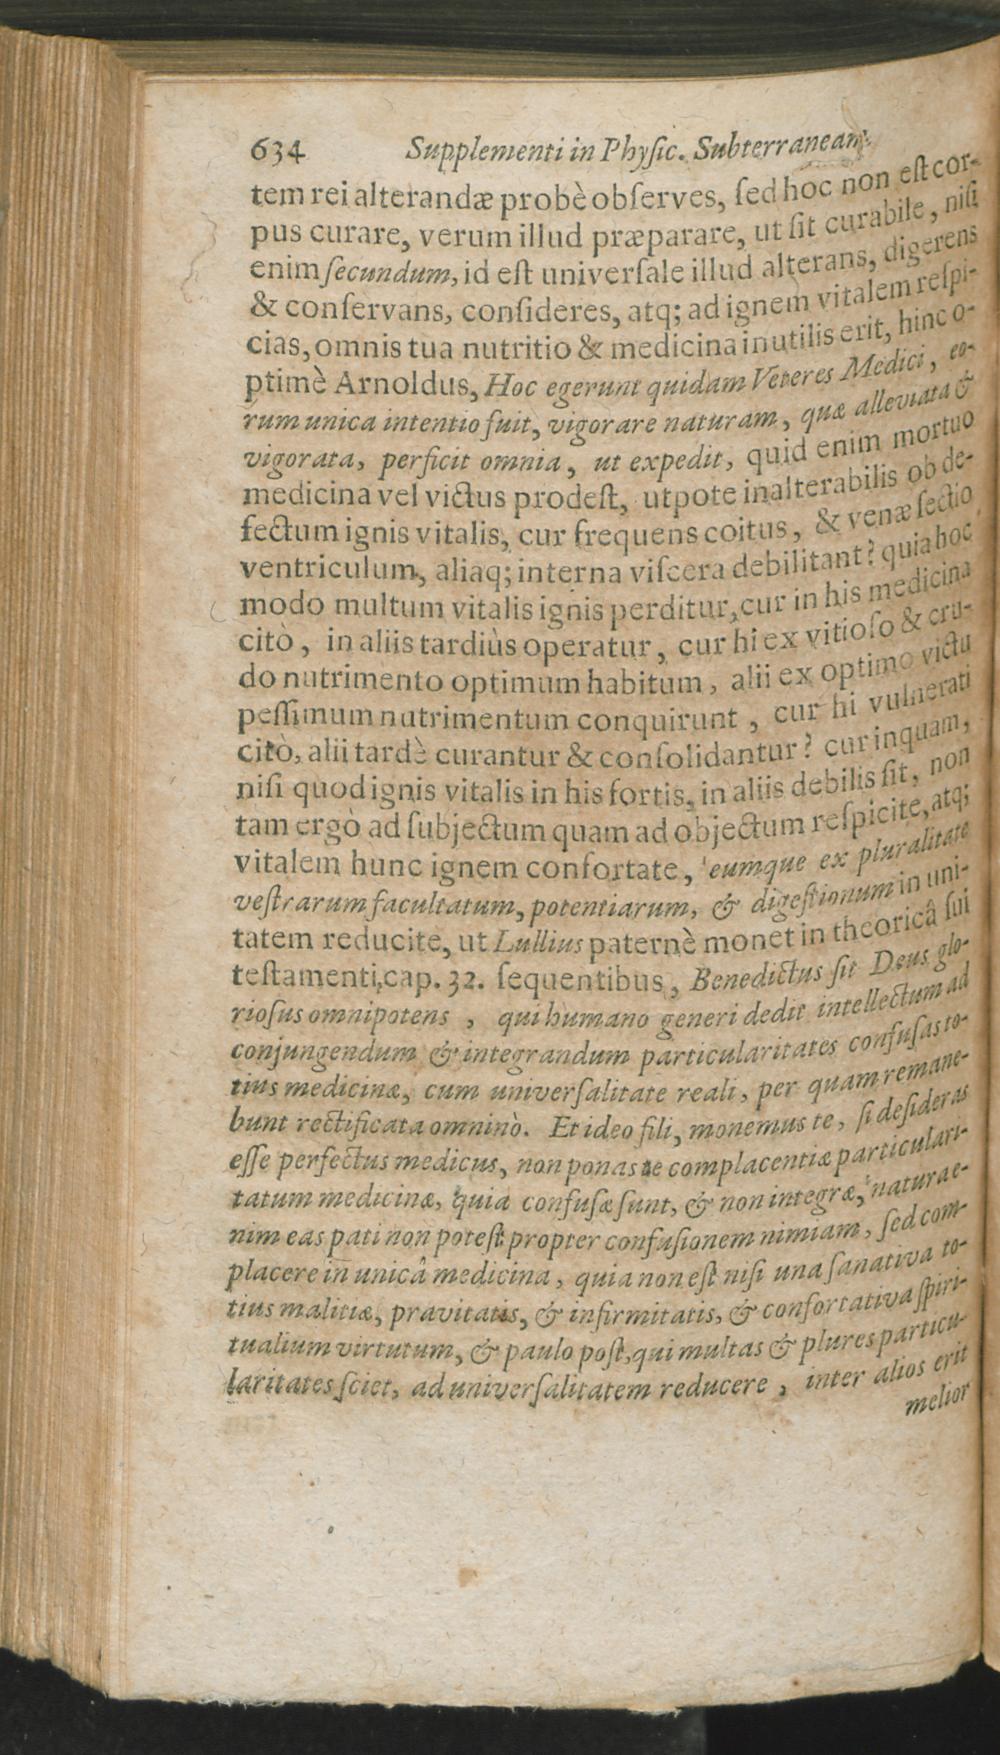 634 Supplementi in Physic. Subterraneam
tem rei alterandæ probè obſerves, ſed hoc non eſt cor-
pus curare, verum illud præparare, ut ſit curabile, niſi
enim ſecundum, id eſt univerſale illud alterans, digerens
& conſervans, conſideres, atq; ad ignem vitalem reſpi-
cias, omnis tua nutritio & medicina inutilis erit, hinc o-
ptimè Arnoldus, Hoc egerunt quidam Veteres Medici, eo-
rum unica intentio fuit, vigorare naturam, quæ alleviata &
vigorata, perficit omnia, ut expedit, quid enim mortuo
medicina vel victus prodeſt, utpote inalterabilis ob de-
fectum ignis vitalis, cur frequens coitus, & venæ ſectio
ventriculum, aliaq; interna viſcera debilitant? quia hoc
modo multum vitalis ignis perditur, cur in his medicina
citò, in aliis tardiùs operatur, cur hi ex vitioſo & cru-
do nutrimento optimum habitum, alii ex optimo victu
peſſimum nutrimentum conquirunt, cur hi vulnerati
citò, alii tardè curantur & conſolidantur? cur inquam,
niſi quod ignis vitalis in his fortis, in aliis debilis ſit, non
tam ergò ad ſubjectum quam ad objectum reſpicite, atq;
vitalem hunc ignem confortate, eumque ex pluralitate
veſtrarum facultatum, potentiarum, & digeſtionum in uni-
tatem reducite, ut Lullius paternè monet in theoricâ ſui
teſtamenti, cap. 32. ſequentibus, Benedictus ſit Deus glo-
rioſus omnipotens, qui humano generi dedit intellectum ad
conjungendum & integrandum particularitates confuſas to-
tius medicinæ, cum univerſalitate reali, per quam remane-
bunt rectificata omninò. Et ideo fili, monemus te, ſi deſideras
eſſe perfectus medicus, non ponas te complacentiæ particulari-
tatum medicinæ, quia confuſæ ſunt, & non integræ, natura e-
nim eas pati non poteſt propter confuſionem nimiam, ſed com-
placere in unicâ medicina, quia non eſt niſi una ſanativa to-
tius malitiæ, pravitatis, & infirmitatis, & confortativa ſpiri-
tualium virtutum, & paulo poſt, qui multas & plures particu-
laritates ſciet, ad univerſalitatem reducere, inter alios erit
melior